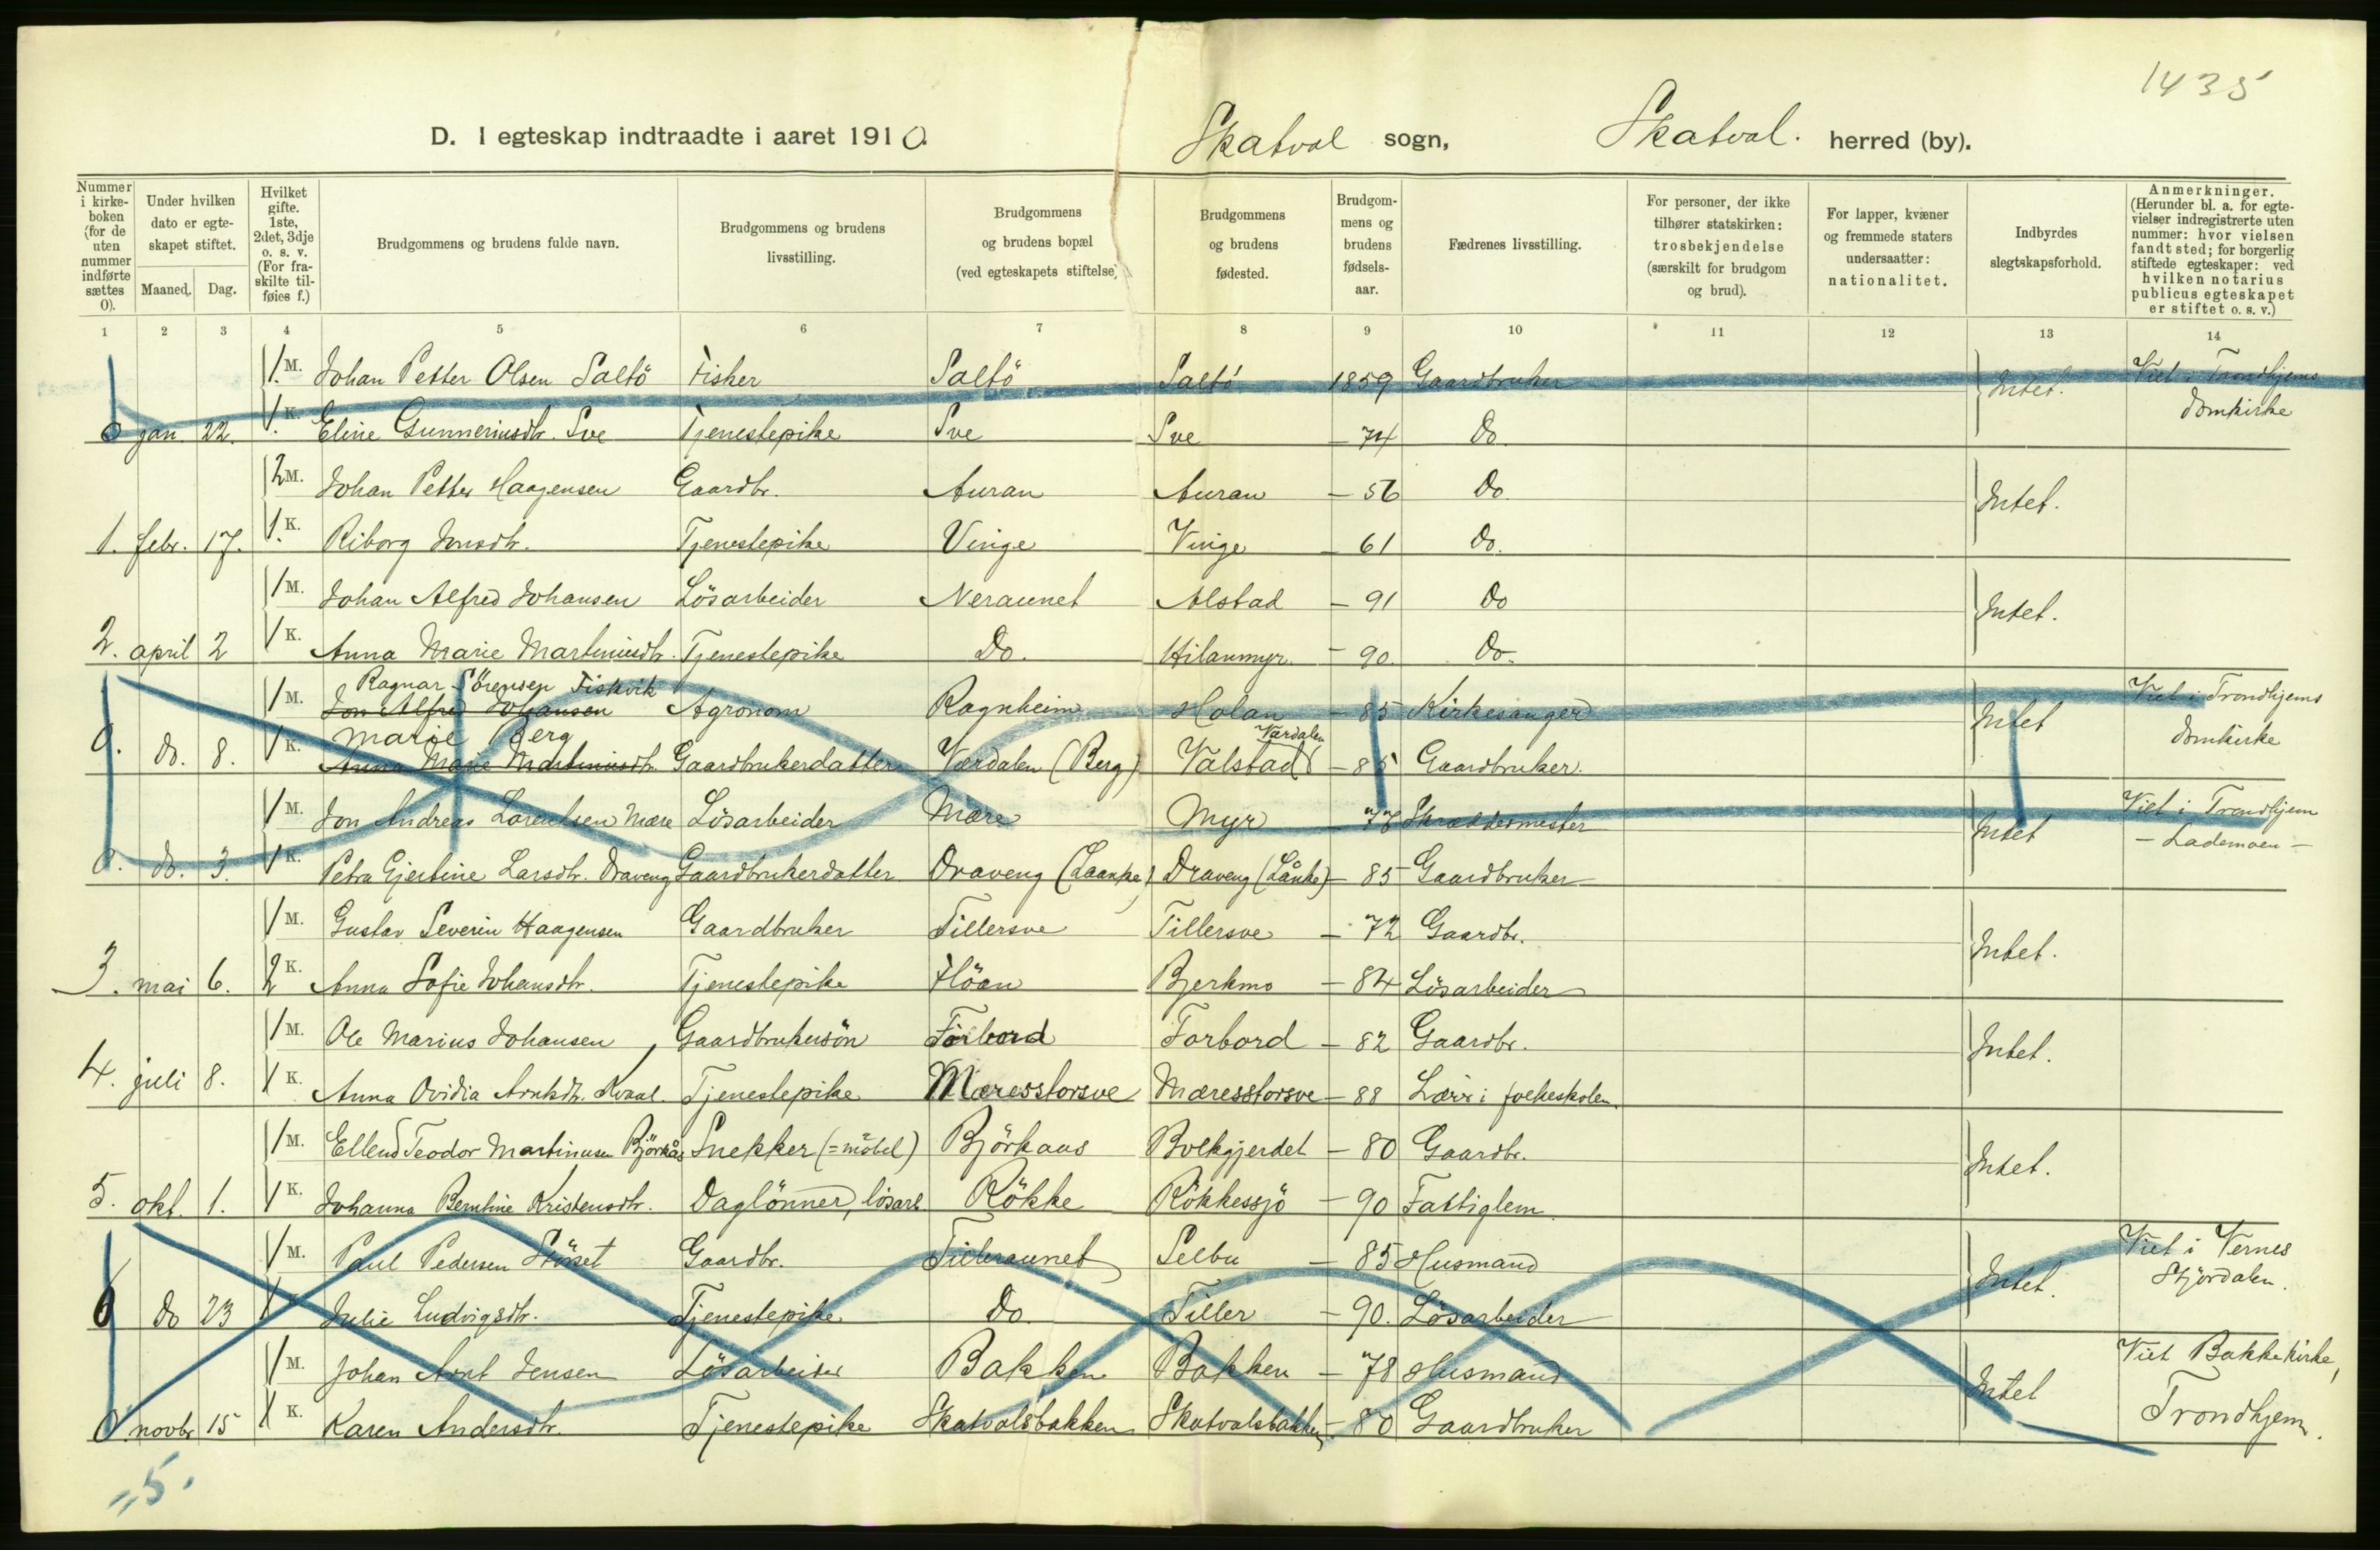 1435
D. I egteskap indtraadte i aaret 1910. Skatval sogn, Skatval. herred (by).
Nummer i kirke-boken (for de uten nummer indførte sættes 0). Under hvilken dato er egte-skapet stiftet. Maaned. Dag. Hvilket gifte. 1ste, 2det, 3dje o. s. v. (For fra-skilte til-føies f.) Brudgommens og brudens fulde navn. Brudgommens og brudens livsstilling. Brudgommens og brudens bopæl (ved egteskapets stiftelse) Brudgommens og brudens fødested. Brudgom-mens og brudens fødsels-aar. Fædrenes livsstilling. For personer, der ikke tilhører statskirken: trosbekjendelse (særskilt for brudgom og brud). For lapper, kvæner og fremmede staters undersaatter: nationalitet. Indbyrdes slegtskapsforhold. Anmerkninger. (Herunder bl. a. for egte-vielser indregistrerte uten nummer: hvor vielsen fandt sted; for borgerlig stiftede egteskaper: ved hvilken notarius publicus egteskapet er stiftet o. s. v.)
1 2 3 4 5 6 7 8 9 10 11 12 13 14
1. M. Johan Petter Olsen Saltö Fisker Saltö Saltö 1859 Gaardbruker Intet. Viet i Trondhjems
0 jan. 22. 1. K. Eline Gunneriusdtr. Sve Tjenestepike Sve Sve – 74 Do. domkirke
2 M. Johan Petter Haagensen Gaardbr. Auran Auran – 56 Do. Intet.
1. febr. 17. 1. K. Riborg Jonsdtr. Tjenestepike Vinge Vinge – 61 Do.
1 M. Johan Alfred Johansen Lösarbeider Neraunet Alstad – 91 Do Intet.
2. april 2 1 K. Anna Marie Martiniusdtr. Tjenestepike Do. Hilanmyr. – 90. Do.
Ragnar Sörensen Fiskvik
1 M. Jon Alfred Johansen Agronom Ragnheim Holan – 85 Kirkesanger Intet Viet i Trondhjems
Marie Berg Værdalen
0. do. 8. 1 K. Anna Marie Martiniusdtr. Gaardbrukerdatter Værdalen (Berg) Valstad – 85 Gaardbruker. domkirke
1 M. Jon Andreas Lorentsen Mære Lösarbeider Mære Myr – 78 Skræddermester Intet Viet i Trondhjem
0. do. 3. 1 K. Petra Gjertine Larsdtr. Draveng Gaardbrukerdatter Draveng (Laanke) Draveng (Lånke) – 85 Gaardbruker – Lademoen –
1 M. Gustav Severin Haagensen Gaardbruker Tillersve Tillersve – 72 Gaardbr. Intet.
3. mai 6. 2 K. Anna Sofie Johansdtr. Tjenestepike Flöan Bjerkmo – 84 Lösarbeider
1 M. Ole Marius Johansen Gaardbrukersön Forbord Forbord – 82 Gaardbr. Intet.
4. juli 8. 1 K. Anna Ovidia Arntsdtr. Kvaal. Tjenestepike Mæresstorsve Mæresstorsve – 88 Lærer i folkeskolen.
1 M. Ellend Teodor Martinusen Björkås Snekker (= möbel) Björkaas Bolkgjerdet – 80 Gaardbr. Intet.
5. okt. 1. 1 K. Johanna Berntine Kristensdtr. Daglönner, lösarb. Rökke Rökkessjö – 90 Fattiglem.
1 M. Paul Pedersen Stöset Gaardbr. Tilleraunet Selbu – 85 Husmand Intet. Viet i Vernes
0 Do 23 1 Julie Ludvigsdtr. Tjenestepike Do. Tiller – 90. Lösarbeider Stjørdalen.
1 M. Johan Arnt Jensen Lösarbeider Bakken Bakken – 78 Husmand Intet Viet Bakke kirke,
0 novbr 15 1 K. Karen Andersdtr. Tjenestepike Skatvalsbakken Skatvalsbakken – 80 Gaardbruker Trondhjem.
„5.